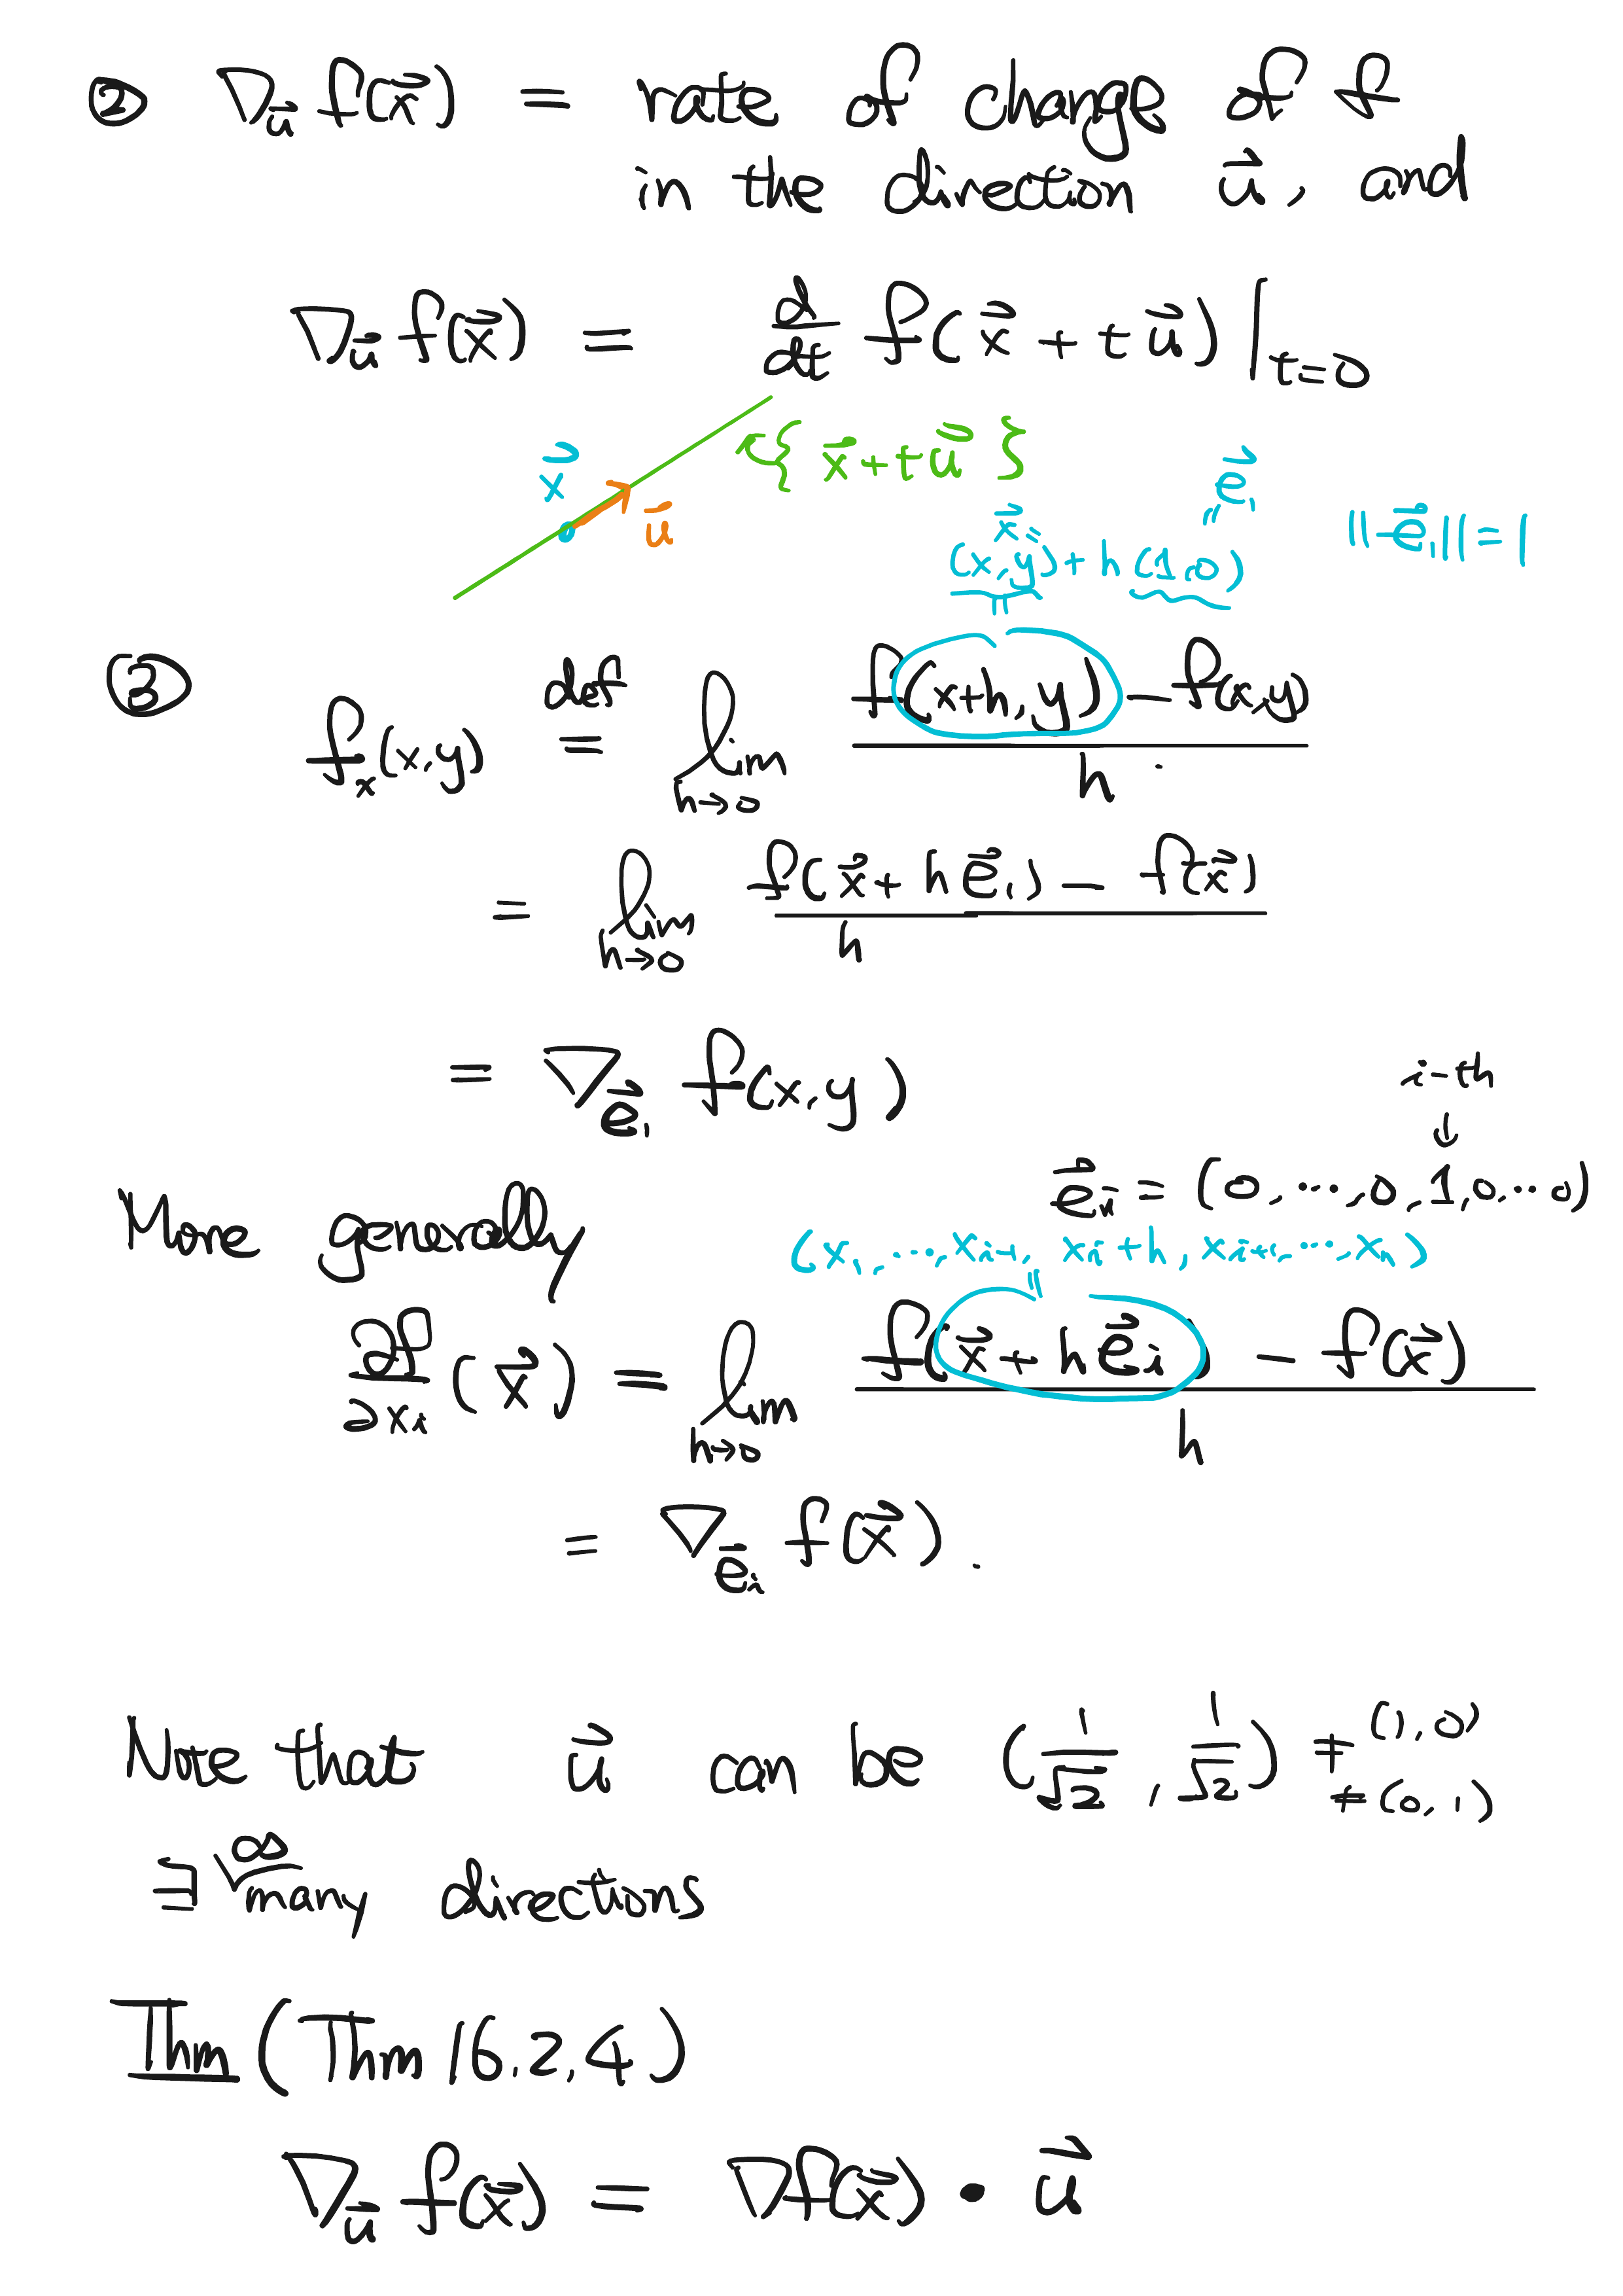 ② ∇_u⃗ f(x⃗) = rate of change of f
in the direction u⃗, and
∇_u⃗ f(x⃗) = d/dt f(x⃗ + t u⃗) |_{t=0}
{ x⃗ + t u⃗ }
x⃗
u⃗
x⃗ = e⃗₁ ||e⃗₁|| = 1
(x,y) + h (1,0)
③ f_x(x,y) def= lim_{h→0} (f(x+h, y) − f(x,y)) / h
= lim_{h→0} (f(x⃗ + h e⃗₁) − f(x⃗)) / h
= ∇_e⃗₁ f(x,y)
i-th
↓
e⃗ᵢ = (0, ⋯, 0, 1, 0, ⋯ 0)
More generally
(x₁, ⋯, x_{i+1}, xᵢ + h, x_{i+1}, ⋯, xₙ)
∂f/∂xᵢ (x⃗) = lim_{h→0} (f(x⃗ + h e⃗ᵢ) − f(x⃗)) / h
= ∇_e⃗ᵢ f(x⃗).
Note that u⃗ can be (1/√2, 1/√2) ≠ (1,0)
≠ (0,1)
∃ ∞ many directions
Thm (Thm 16.2.4)
∇_u⃗ f(x⃗) = ∇f(x⃗) • u⃗